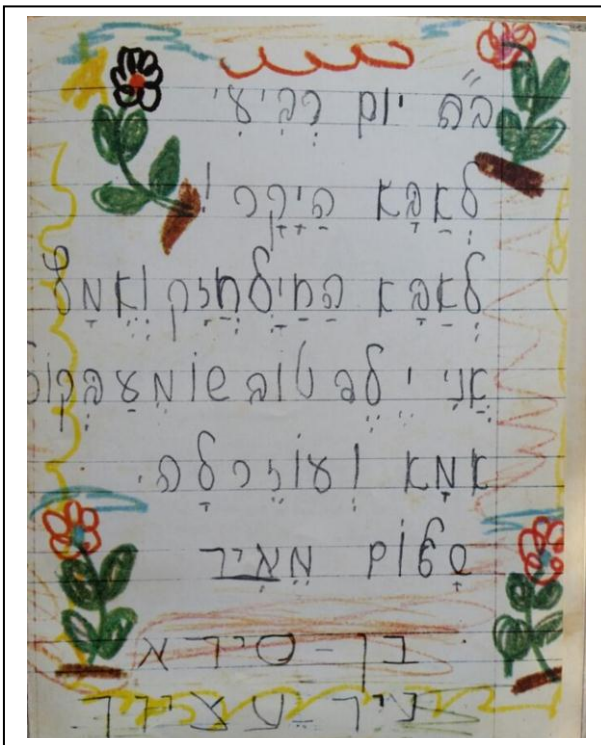 ב"ה יום רְבִיעִי
לְאַבָּא הַיָקָר!
לְאַבָּא הַחַיָל חֲזַק וֶאֱמָץ
אֲנִי יֶלֶד טוֹב שׁוֹמֵעַ בְּקוֹל
אִמָא וְעוֹזֵר לָה.
סָלוֹם מֵאִיר
בן - סירא
ניר עציון